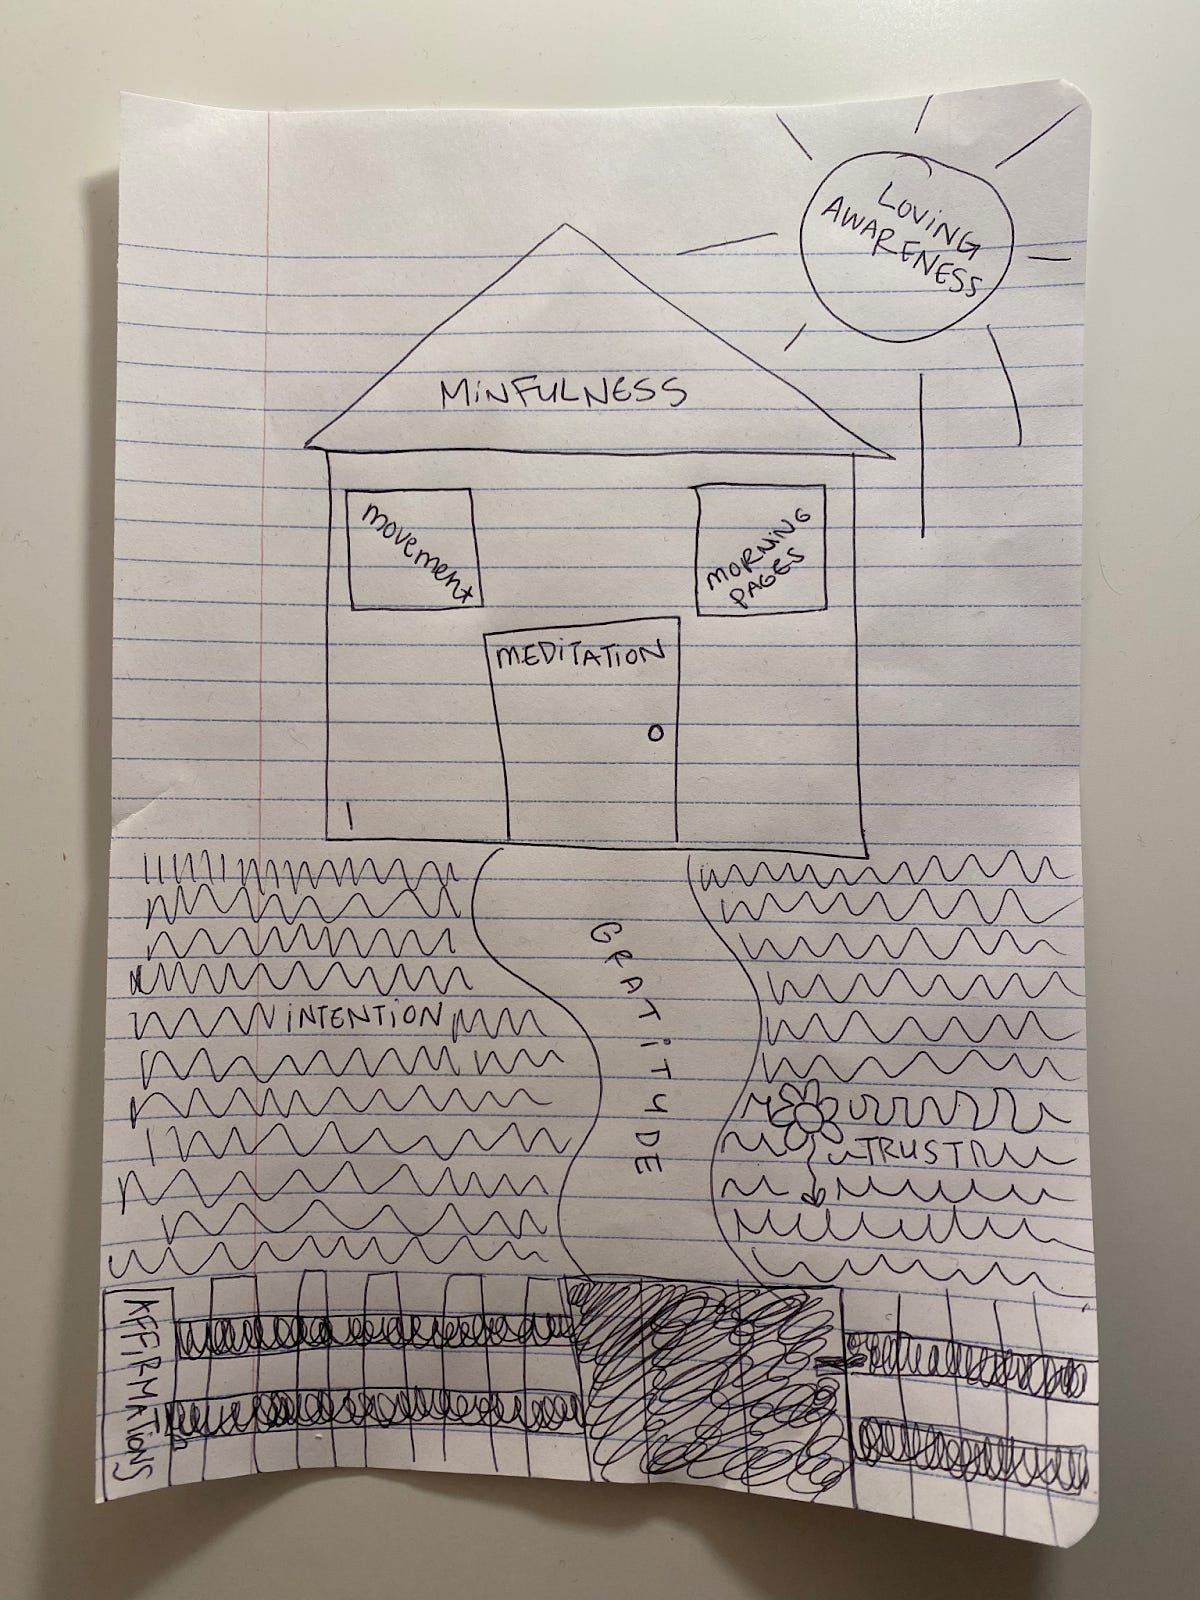 LOViNG
AWARENESS
MiNFULNESS
movement
MORNiNG
PAGES
MEDiTATiON
GRATiTUDE
iNTENTiON
TRUST
AFFiRMATiONS